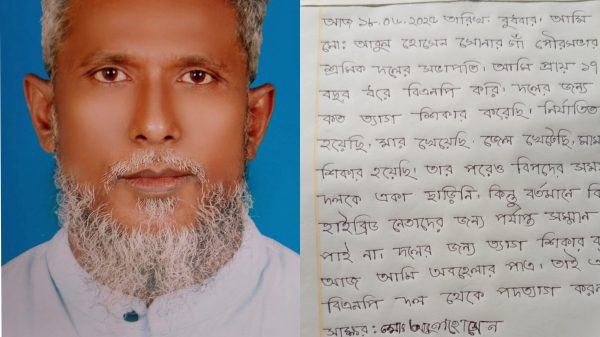 আজ ১৮.০৬.২০২৫ তারিখ, বুধবার, আমি
মো: আবুল হোসেন সোনার গাঁ পৌরসভার
শ্রমিক দলের সভাপতি। আমি প্রায় ১৭
বছর ধরে বিএনপি করি। দলের জন্য
কত ত্যাগ শিকার করেছি, নির্যাতিত
হয়েছি, মার খেয়েছি, জেল খেটেছি,
শিকার হয়েছি, তার পরেও বিপদের
দলকে একা ছাড়িনি। কিন্তু বর্তমানে
হাইব্রিড নেতাদের জন্য পর্যাপ্ত সম্মান
পাই না। দলের জন্য ত্যাগ শিকার
আজ আমি অবহেলার পাত্র, তাই
বিএনপি দল থেকে পদত্যাগ
স্বাক্ষর: মোঃ আবুল হোসেন